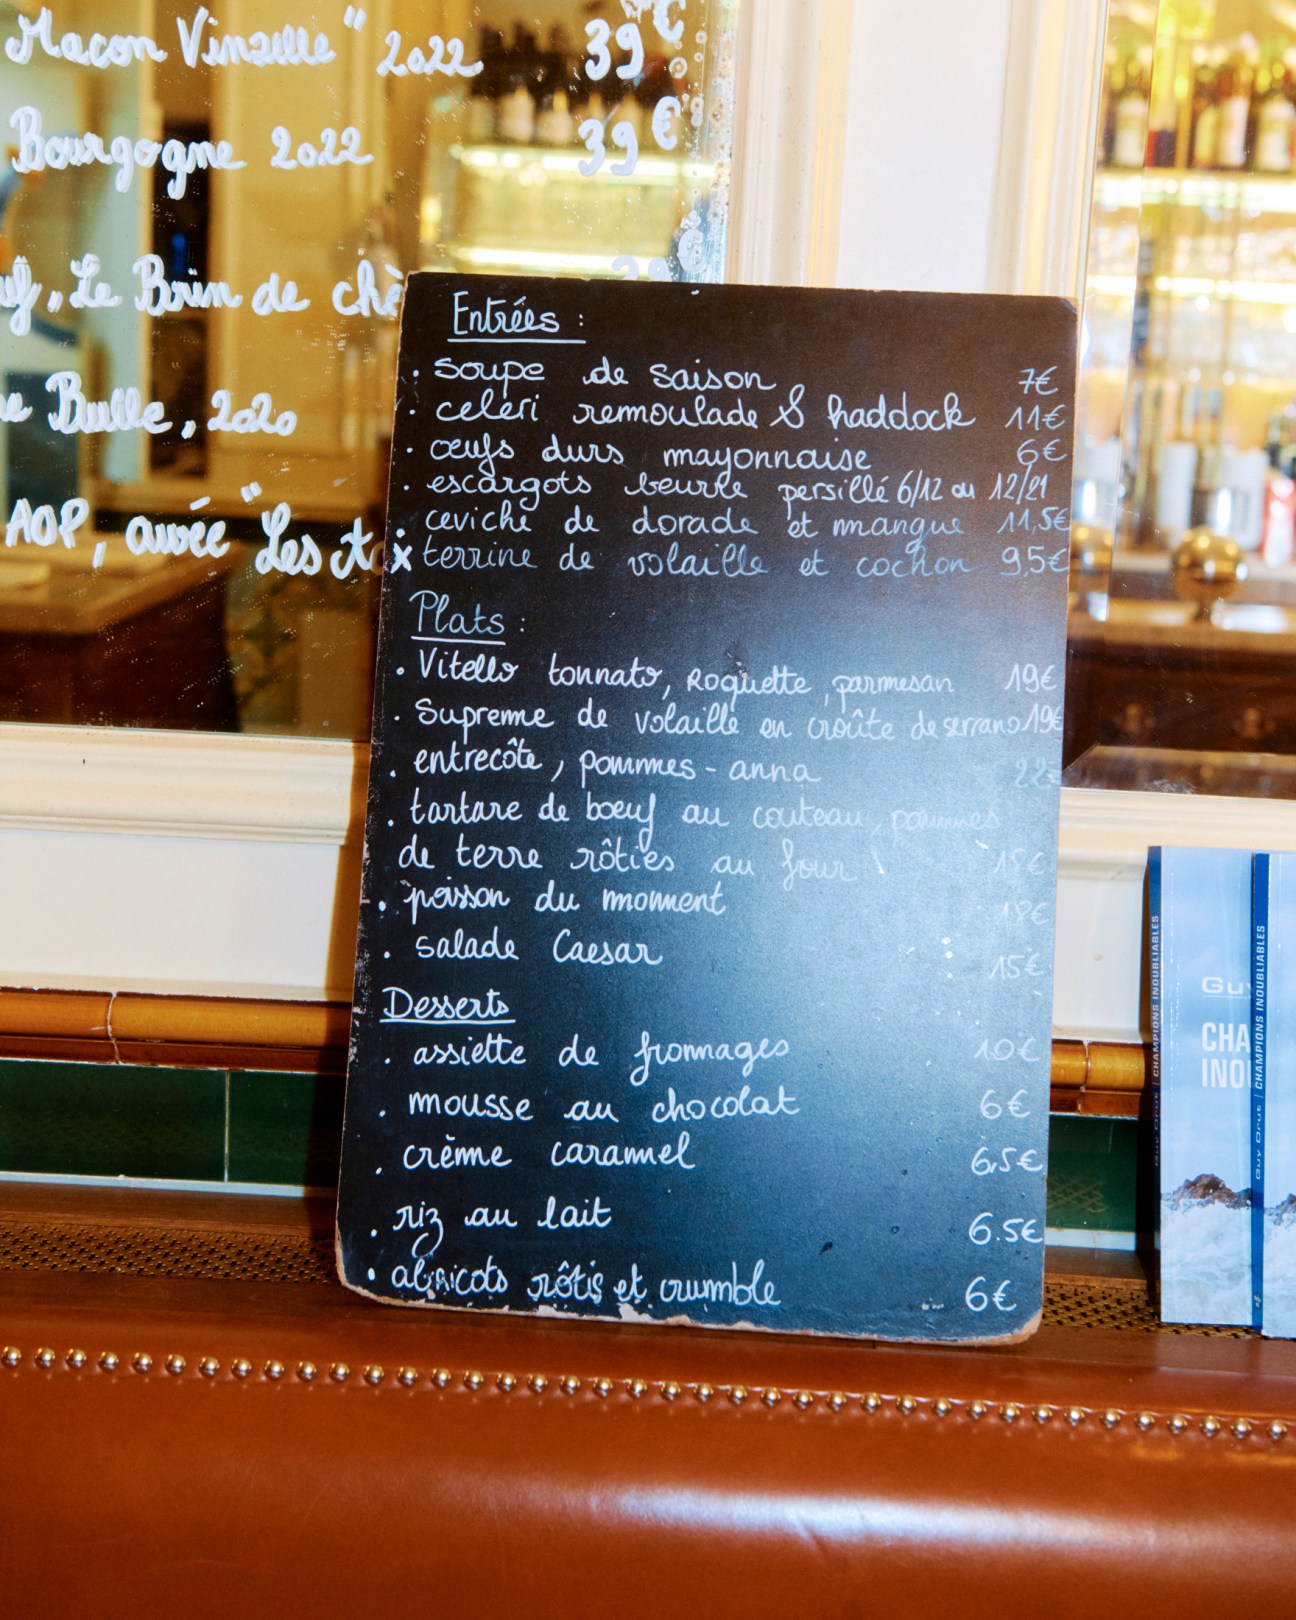 Macon Vinzelle" 2022 39€
Bourgogne 2022 39€
, Le Brin de chè
Bulle, 2020
AOP, cuvée "Les
Entrées :
. soupe de saison 7€
. celeri remoulade & haddock 11€
. œufs durs mayonnaise 6€
. escargots beurre persillé 6/12 ou 12/21
. ceviche de dorade et mangue 11,5€
x terrine de volaille et cochon 9,5€
Plats :
. Vitello tonnato, Roquette, parmesan 19€
. Supreme de volaille en croûte de serrano 19€
. entrecôte, pommes-anna 22€
. tartare de boeuf au couteau, pommes
de terre rôties au four 18€
. poisson du moment 18€
. salade Caesar 15€
Desserts
. assiette de fromages 10€
. mousse au chocolat 6€
. crème caramel 6,5€
. riz au lait 6.5€
. abricots rôtis et crumble 6€
Guy Drut | CHAMPIONS INOUBLIABLES
Guy
CHA
INOU
Guy Drut | CHAMPIONS INOUBLIABLES